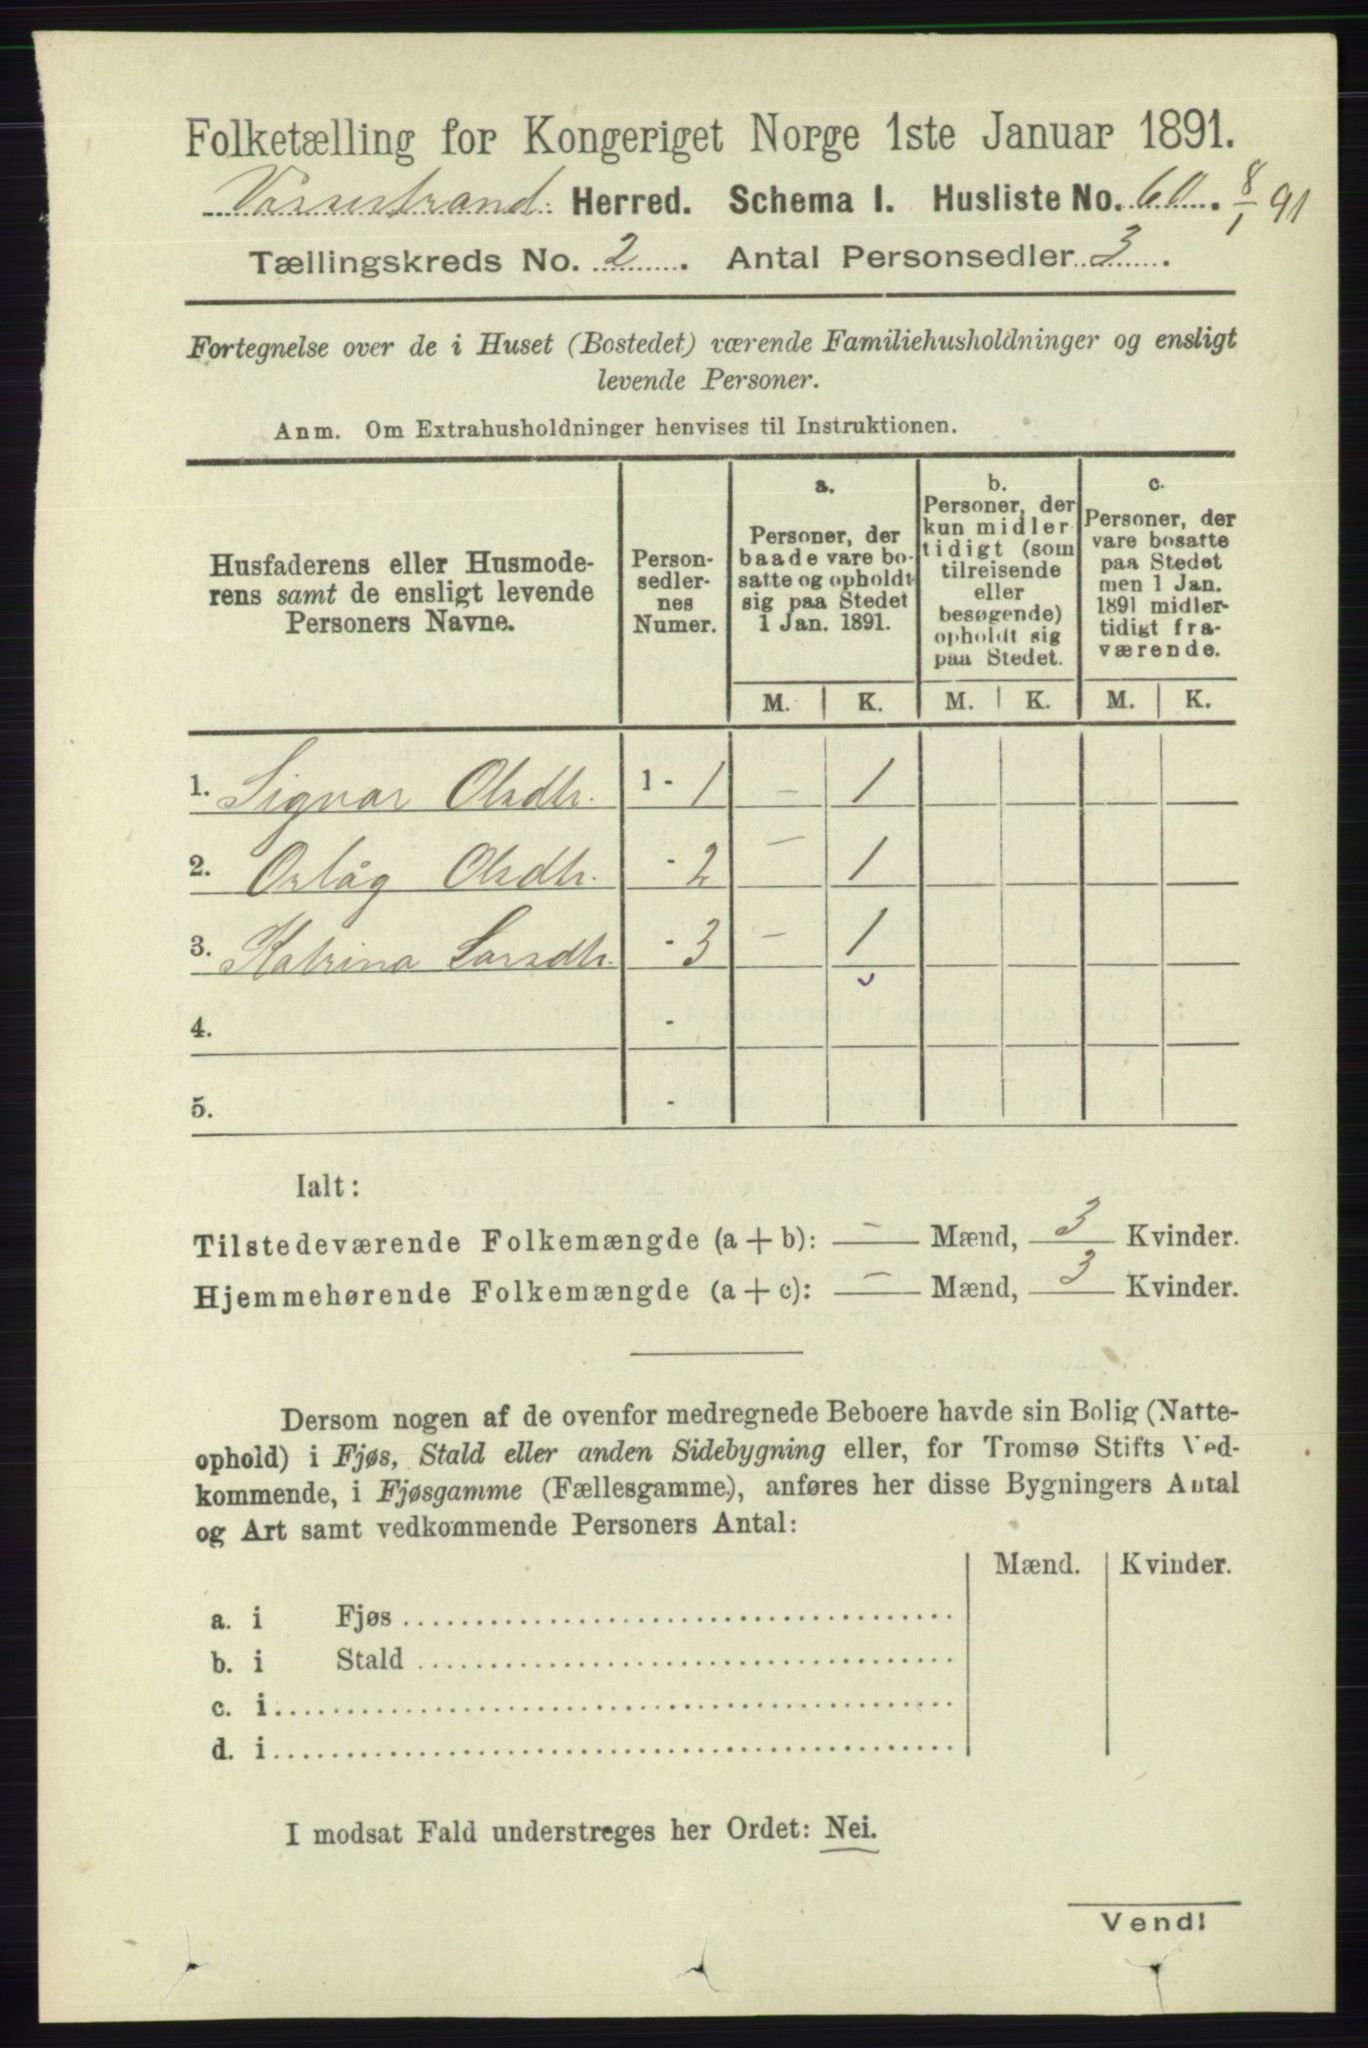 Folketælling for Kongeriget Norge 1ste Januar 1891.
Vossestrand Herred. Schema I. Husliste No. 60. 8/1 91
Tællingskreds No. 2. Antal Personsedler 3.
Fortegnelse over de i Huset (Bostedet) værende Familiehusholdninger og ensligt
levende Personer.
Anm. Om Extrahusholdninger henvises til Instruktionen.
Husfaderens eller Husmode-
rens samt de ensligt levende
Personers Navne.
Person-
sedler-
nes
Numer.
a.
Personer, der
baade vare bo-
satte og opholdt
sig paa Stedet
1 Jan. 1891.
M. K.
b.
Personer, der
kun midler
tidigt (som
tilreisende
eller
besøgende)
opholdt sig
paa Stedet.
M. K.
c.
Personer, der
vare bosatte
paa Stedet
men 1 Jan.
1891 midler-
tidigt fra-
værende.
M. K.
1. Signar Olsdtr. 1 - 1 – 1
2. Orlåg Olsdtr. - 2 – 1
3. Katrina Larsdtr. - 3 – 1
4. -
5. -
Ialt:
Tilstedeværende Folkemængde (a + b): – Mænd, 3 Kvinder.
Hjemmehørende Folkemængde (a + c): – Mænd, 3 Kvinder.
Dersom nogen af de ovenfor medregnede Beboere havde sin Bolig (Natte-
ophold) i Fjøs, Stald eller anden Sidebygning eller, for Tromsø Stifts Ved-
kommende, i Fjøsgamme (Fællesgamme), anføres her disse Bygningers Antal
og Art samt vedkommende Personers Antal:
Mænd. Kvinder.
a. i Fjøs
b. i Stald
c. i
d. i
I modsat Fald understreges her Ordet: Nei.
Vend!